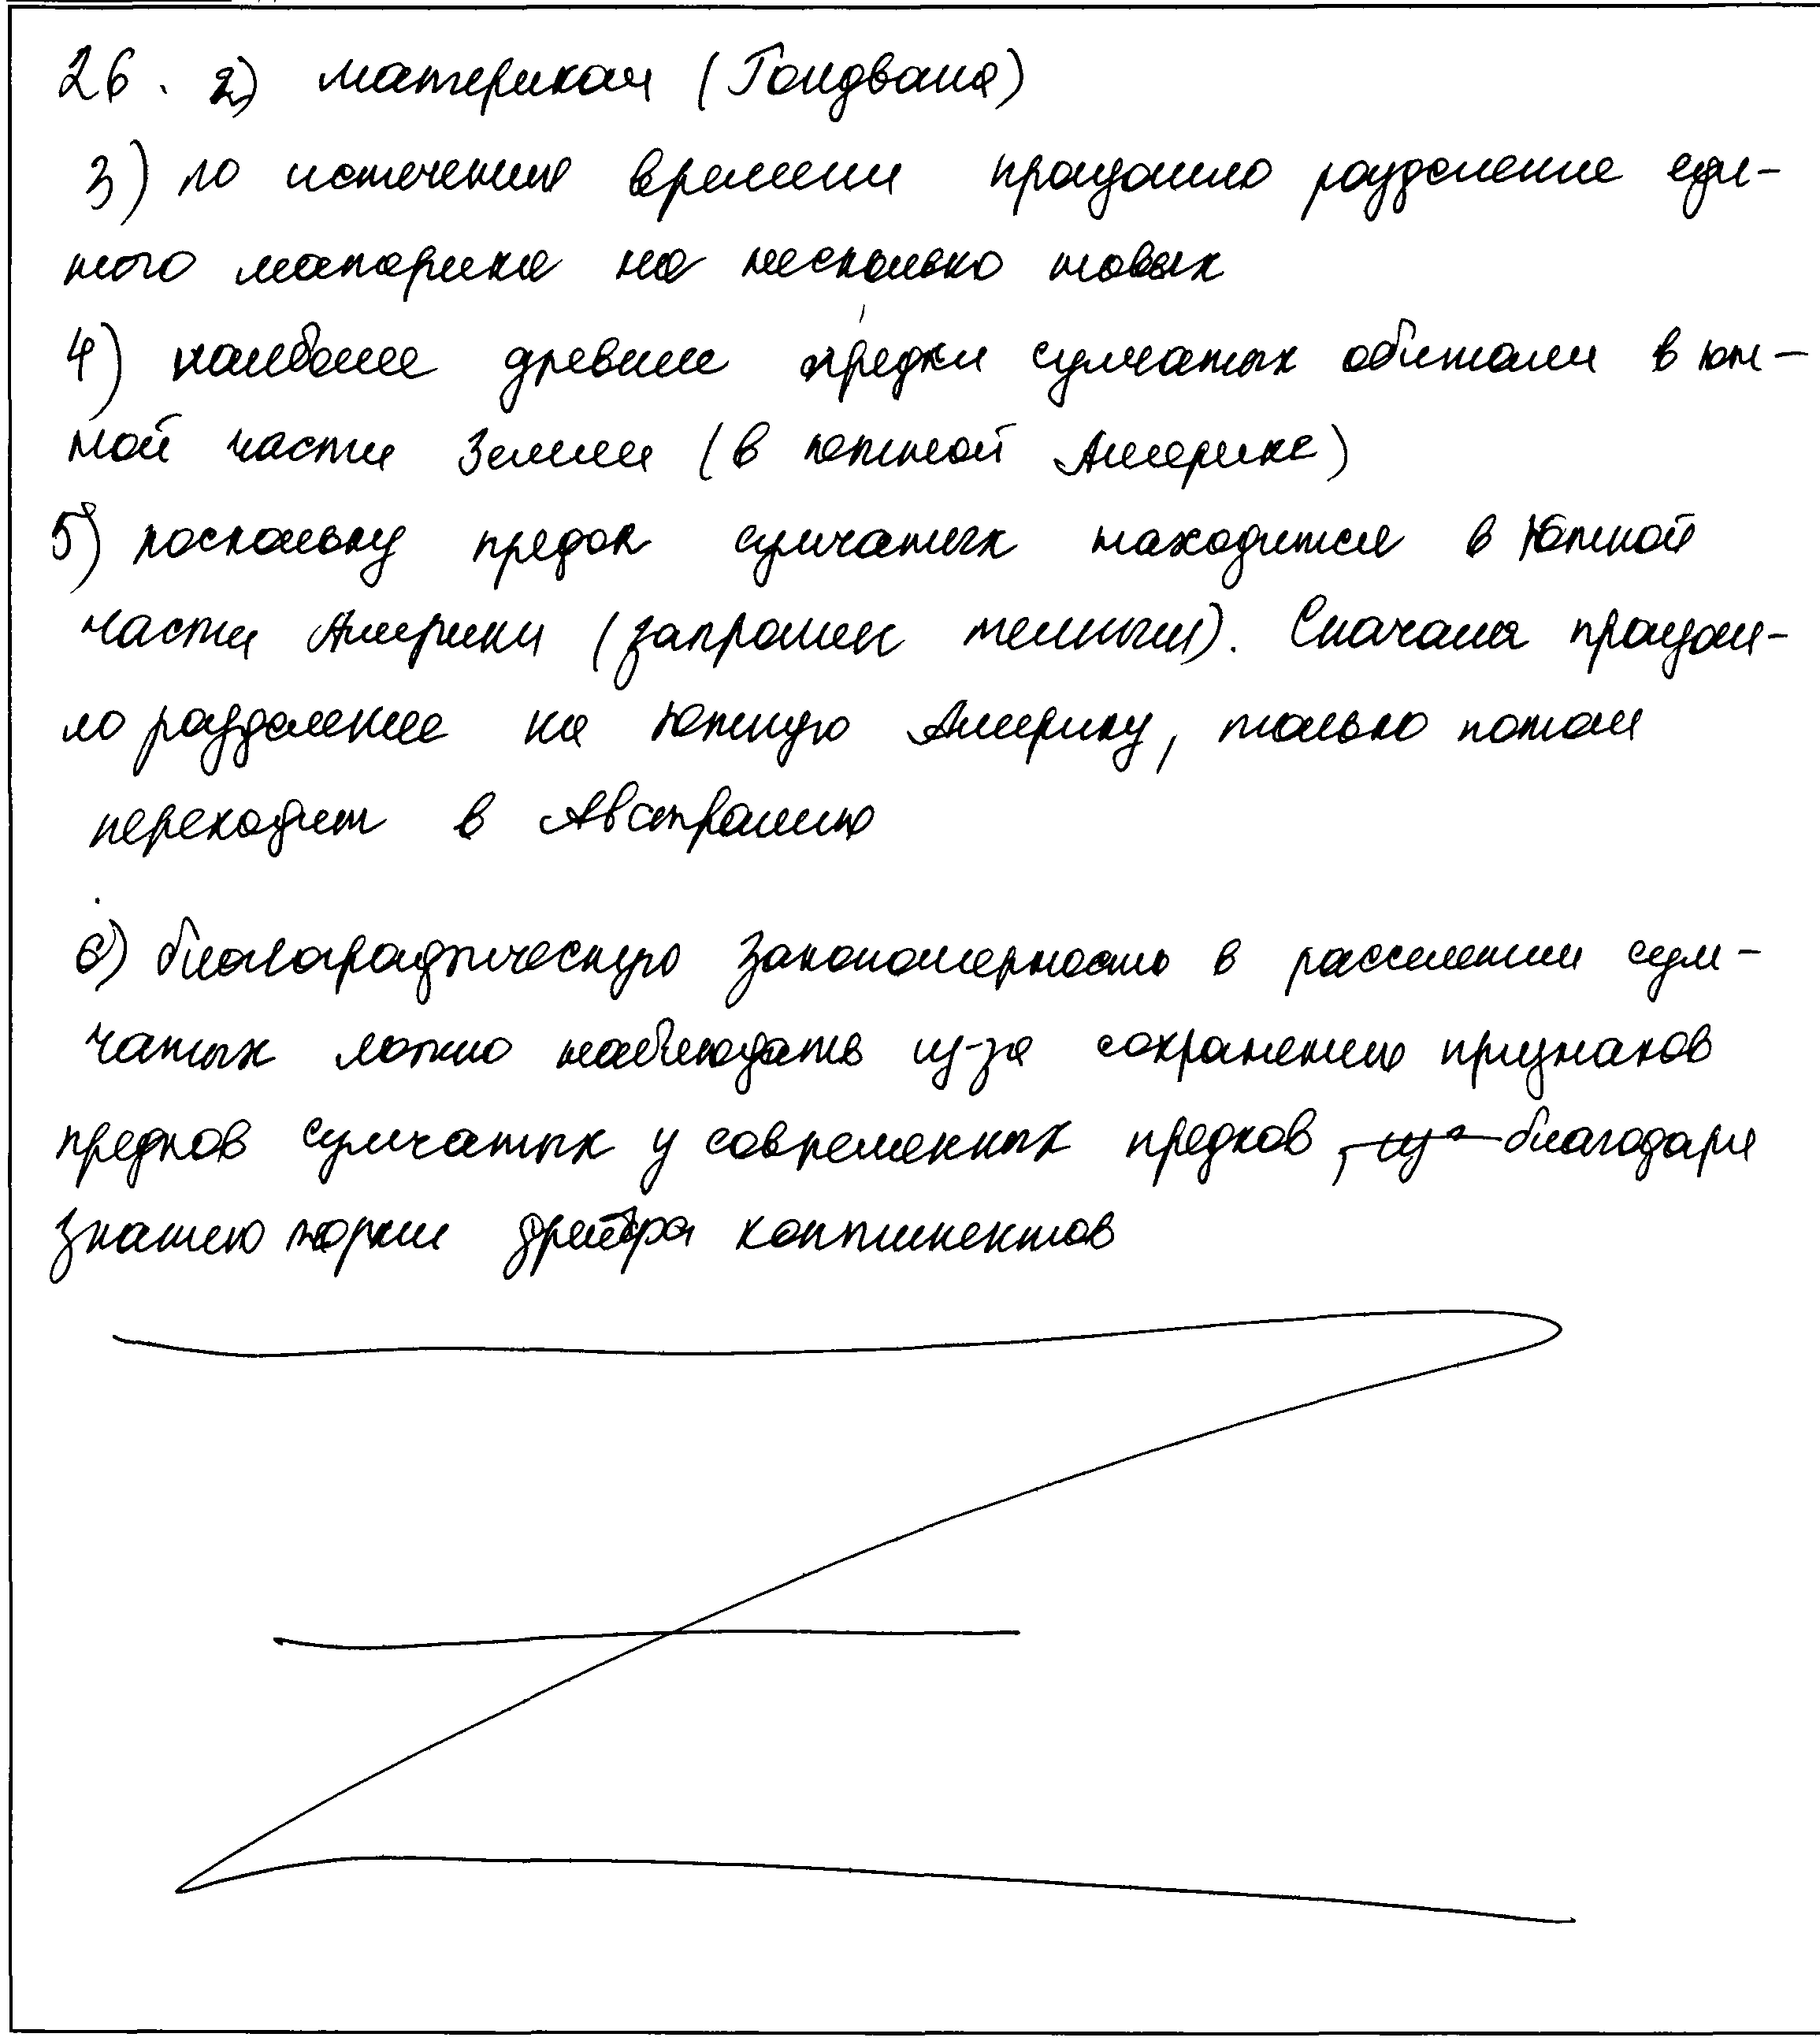 26. 2) материком (Гондвана)
3) по истечению времени произошло разделение еди-
ного материка на несколько новых
4) наиболее древние предки сумчатых обитали в юж-
ной части Земли (в южной Америке)
5) поскольку предок сумчатых находится в Южной
части Америки (запрошен темным). Сначала произош-
ло разделение на Южную Америку, только потом
переходит в Австралию
6) биогеографическую закономерность в расселении сум-
чатых можно наблюдать из-за сохранению признаков
предков сумчатых у современных предков, благодаря
знанию теории дрейфа континентов